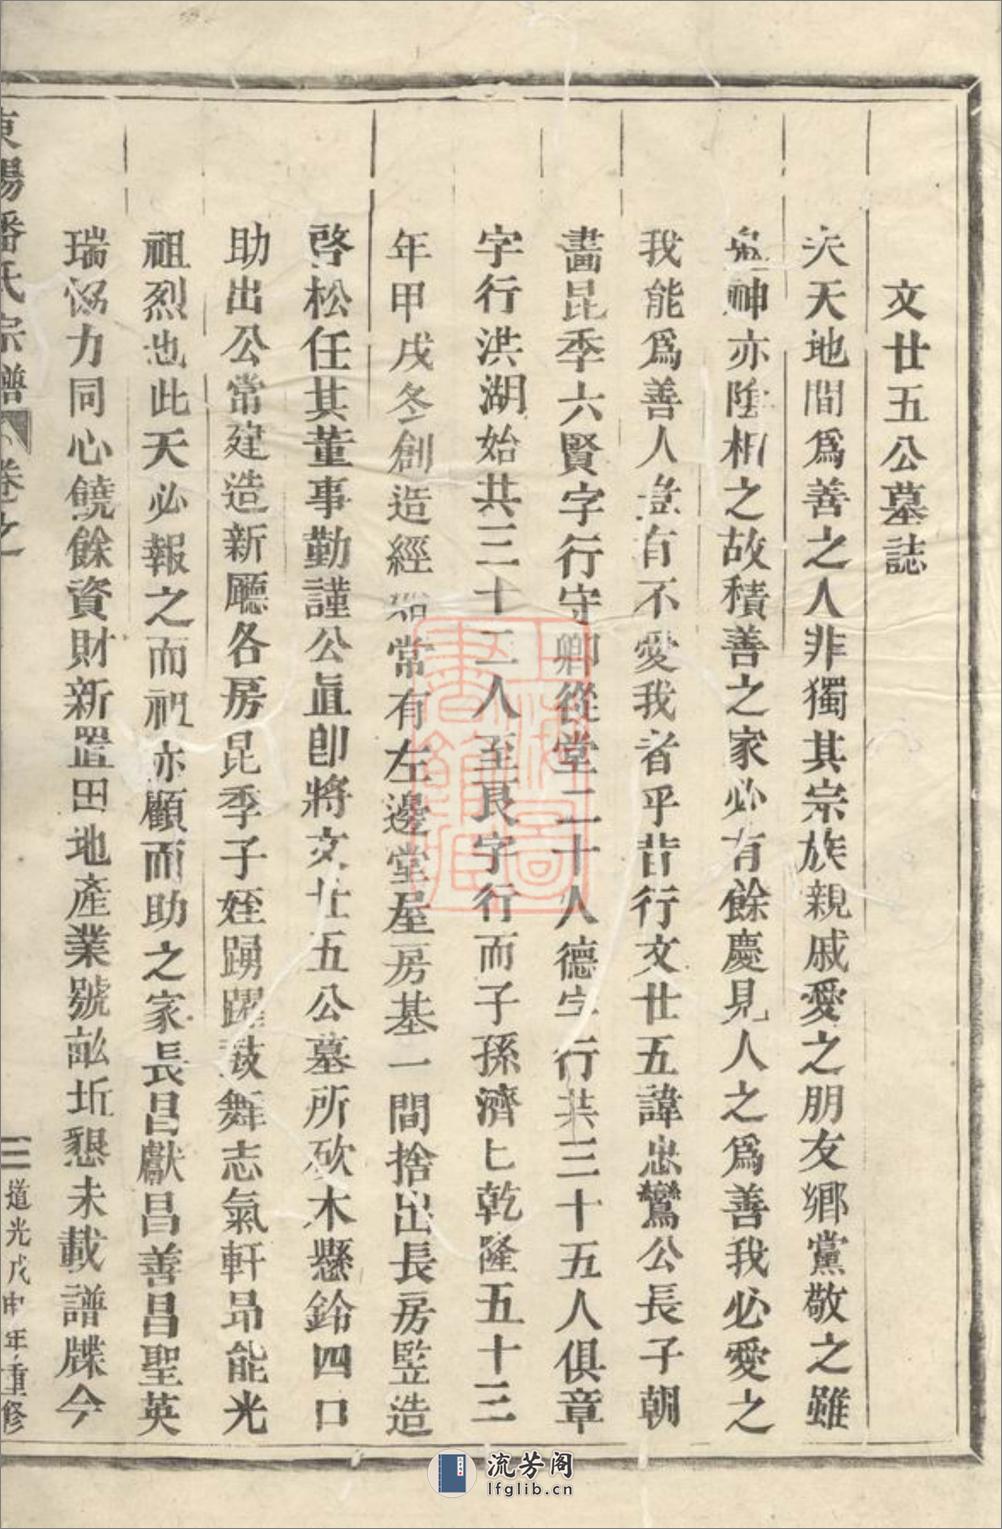 文廿五公墓誌
夫天地間爲善之人非獨其宗族親戚愛之朋友鄉黨敬之雖
鬼神亦陰相之故積善之家必有餘慶見人之爲善我必愛之
我能爲善人豈有不愛我者乎昔行文廿五諱忠鸞公長子朝
畵昆季六賢字行守卿從堂二十人德字行共三十五人俱章
字行洪湖始共三十二人至良字行而子孫濟匕乾隆五十三
年甲戌冬創造經 常有左邊堂屋房基一間捨出長房監造
啓松任其董事勤謹公眞卽將文廿五公墓所砍木懸鈴四口
助出公常建造新廳各房昆季子姪踴躍鼓舞志氣軒昂能光
祖烈也此天必報之而祖亦顧而助之家長昌獻昌善昌聖英
瑞協力同心饒餘資財新置田地產業號畝坵懇未載譜牒今
東陽潘氏宗譜 卷之一
三 道光戊申年重修
上海圖書館藏
流芳阁
lfglib.cn